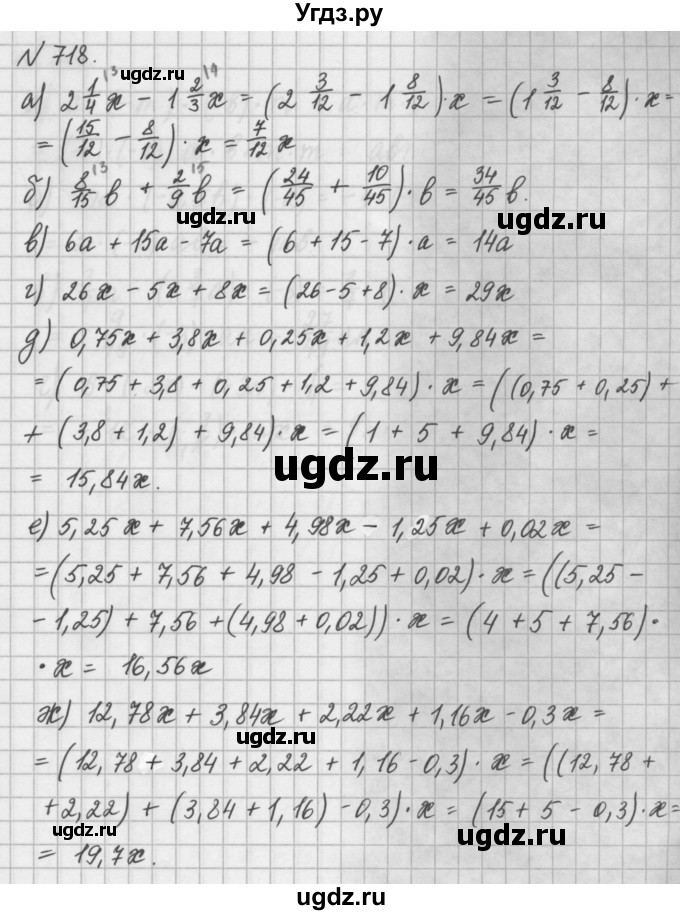 Угдз.ру
№ 718.
а) 2 1/4 x − 1 2/3 x = (2 3/12 − 1 8/12)·x = (1 3/12 − 8/12)·x =
= (15/12 − 8/12)·x = 7/12 x
б) 8/15 в + 2/9 в = (24/45 + 10/45)·в = 34/45 в.
в) 6а + 15а − 7а = (6 + 15 − 7)·а = 14а
г) 26x − 5x + 8x = (26 − 5 + 8)·x = 29x
д) 0,75x + 3,8x + 0,25x + 1,2x + 9,84x =
= (0,75 + 3,8 + 0,25 + 1,2 + 9,84)·x = ((0,75 + 0,25) +
+ (3,8 + 1,2) + 9,84)·x = (1 + 5 + 9,84)·x =
= 15,84x.
е) 5,25x + 7,56x + 4,98x − 1,25x + 0,02x =
= (5,25 + 7,56 + 4,98 − 1,25 + 0,02)·x = ((5,25 −
− 1,25) + 7,56 + (4,98 + 0,02))·x = (4 + 5 + 7,56)·
·x = 16,56x
ж) 12,78x + 3,84x + 2,22x + 1,16x − 0,3x =
= (12,78 + 3,84 + 2,22 + 1,16 − 0,3)·x = ((12,78 +
+ 2,22) + (3,84 + 1,16) − 0,3)·x = (15 + 5 − 0,3)·x =
= 19,7x.
ugdz.ru
ugdz.ru
ugdz.ru
ugdz.ru
ugdz.ru
ugdz.ru
ugdz.ru
ugdz.ru
ugdz.ru